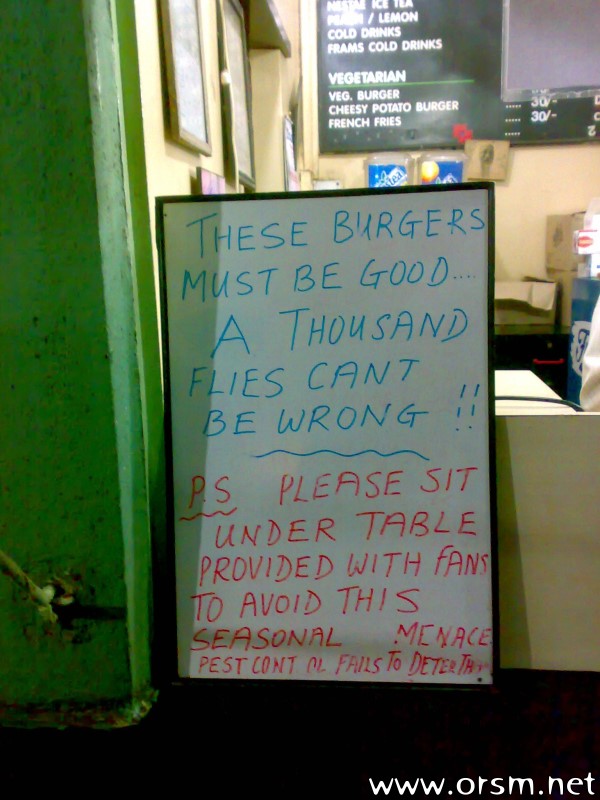 NESTLE ICE TEA
PEACH / LEMON
COLD DRINKS
FRAMS COLD DRINKS
VEGETARIAN
VEG. BURGER
CHEESY POTATO BURGER
FRENCH FRIES
..... 30/-
..... 30/-
..... 30/-
THESE BURGERS
MUST BE GOOD....
A THOUSAND
FLIES CANT
BE WRONG !!
P.S PLEASE SIT
UNDER TABLE
PROVIDED WITH FANS
TO AVOID THIS
SEASONAL MENACE
PEST CONT OL FAILS TO DETER THEM
www.orsm.net